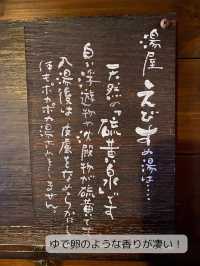 湯屋 えびすの湯は…
天然の「硫黄泉」です
白い浮遊物や沈殿物が硫黄です
入湯後は皮膚をなめらかにし
体もポカポカ湯ざめしません
ゆで卵のような香りが凄い！